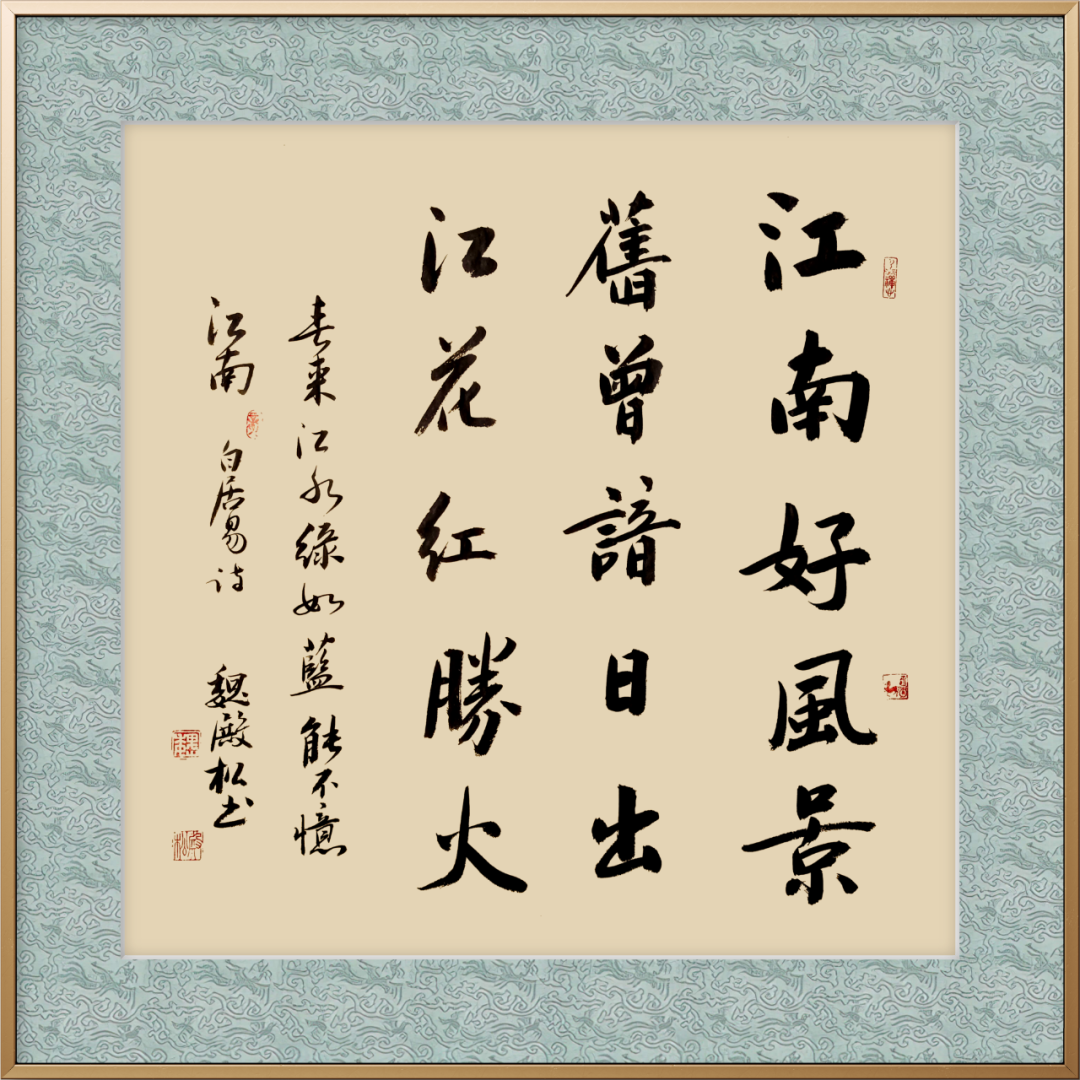 江南好風景
舊曾諳日出
江花红勝火
春來江水綠如藍能不憶
江南 白居易诗 魏殿松书